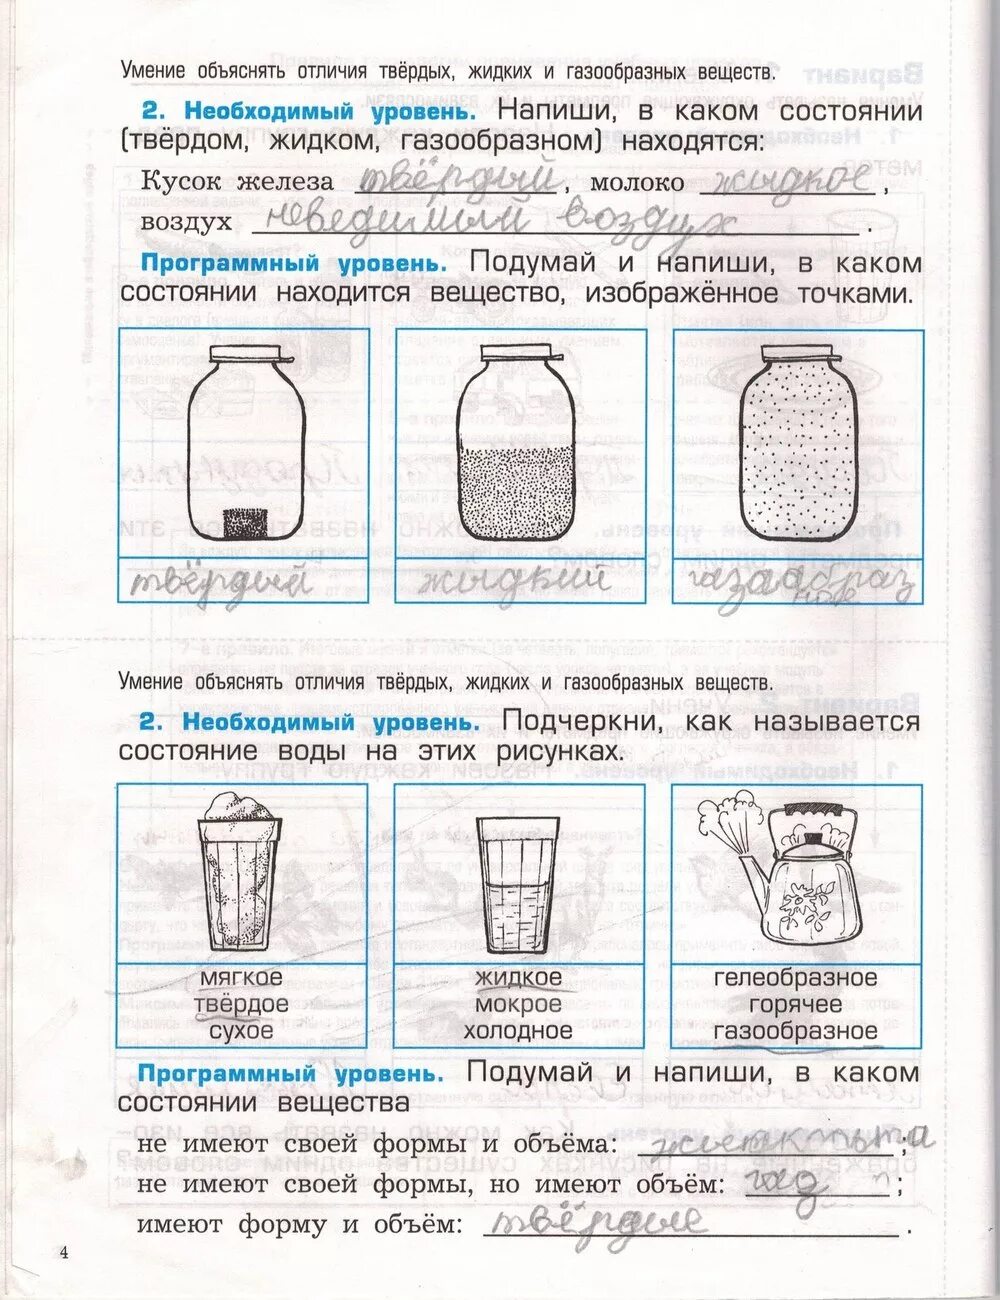 Умение объяснять отличия твёрдых, жидких и газообразных веществ.
2. Необходимый уровень. Напиши, в каком состоянии
(твёрдом, жидком, газообразном) находятся:
Кусок железа твёрдый, молоко жидкое,
воздух неведимый воздух.
Программный уровень. Подумай и напиши, в каком
состоянии находится вещество, изображённое точками.
твёрдый жидкий газаобраз
ное
Умение объяснять отличия твёрдых, жидких и газообразных веществ.
2. Необходимый уровень. Подчеркни, как называется
состояние воды на этих рисунках.
мягкое жидкое гелеобразное
твёрдое мокрое горячее
сухое холодное газообразное
Программный уровень. Подумай и напиши, в каком
состоянии вещества
не имеют своей формы и объёма: ;
не имеют своей формы, но имеют объём: газ ;
имеют форму и объём: твёрдые.
4